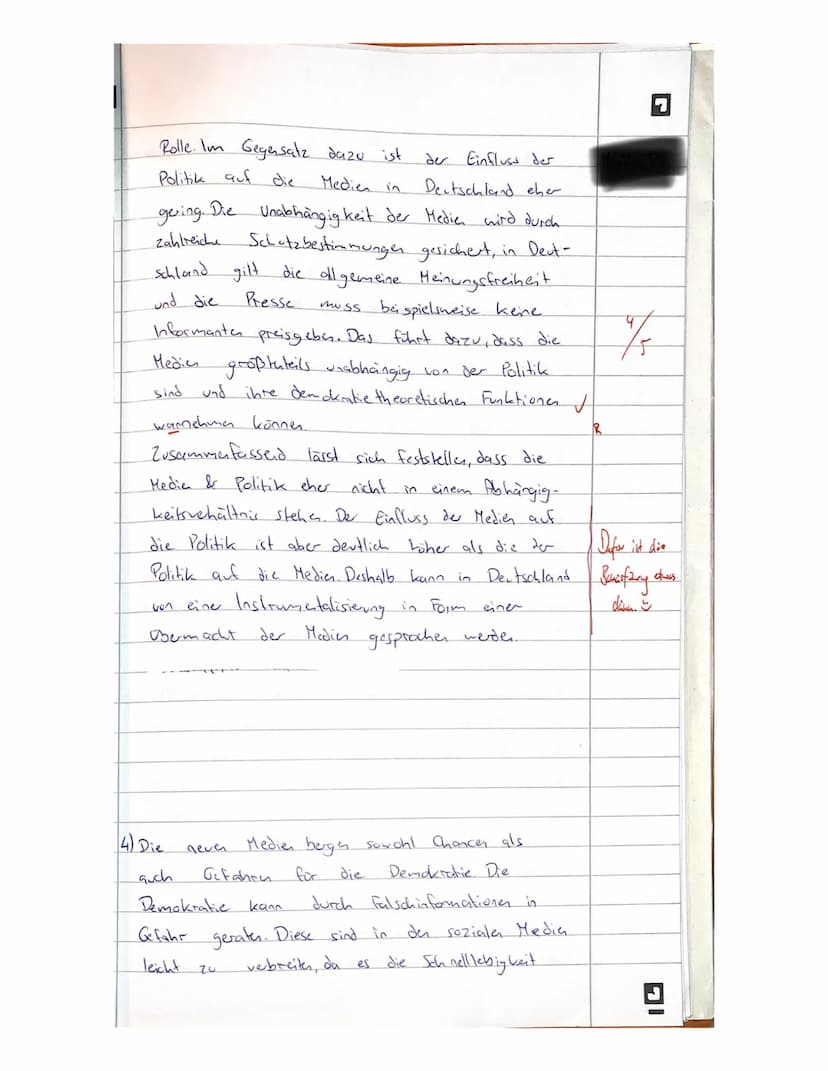 Rolle. Im Gegensatz dazu ist der Einfluss der
Politik auf die Medien in Deutschland eher
gering. Die Unabhängigkeit der Medien wird durch
zahlreiche Schutzbestimmungen gesichert, in Deut-
schland gilt die allgemeine Meinungsfreiheit
und die Presse muss beispielsweise keine
Informanten preisgeben. Das führt dazu, dass die
4/5
Medien größtenteils unabhängig von der Politik
sind und ihre demokratietheoretischen Funktionen ✓
warnehmen können.
R
Zusammenfassend lässt sich feststellen, dass die
Medien & Politik eher nicht in einem Abhängig-
keitsverhältnis stehen. Der Einfluss der Medien auf
die Politik ist aber deutlich höher als die der
Politik auf die Medien. Deshalb kann in Deutschland
von einer Instrumentalisierung in Form einer
Übermacht der Medien gesprochen werden.
Dafür ist die
dünn.
4) Die neuen Medien bergen sowohl Chancen als
auch Gefahren für die Demokratie. Die
Demokratie kann durch Falschinformationen in
Gefahr geraten. Diese sind in den sozialen Medien
leicht zu verbreiten, da es die Schnelllebigkeit